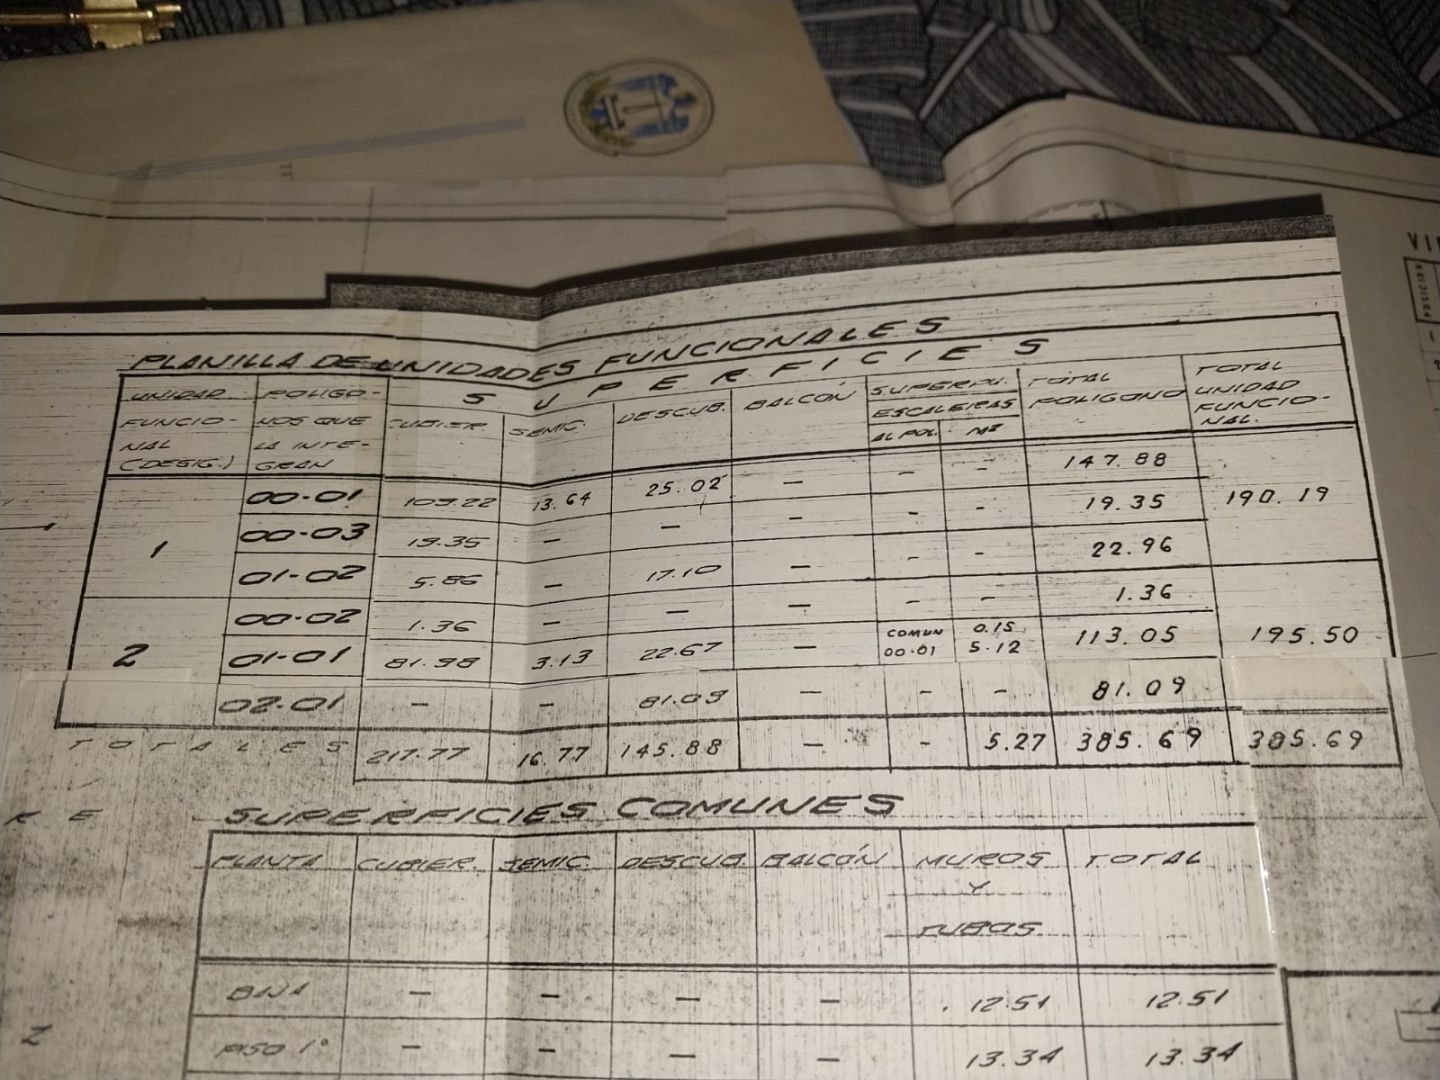 PLANILLA DE UNIDADES FUNCIONALES
UNIDAD FUNCIO- NAL (DESIG.) | POLIGO- NOS QUE LA INTE- GRAN | SUPERFICIES | TOTAL POLIGONO | TOTAL UNIDAD FUNCIO- NAL.
CUBIER. | SEMIC. | DESCUB. | BALCÓN | SUPERPU. ESCALERAS
AL POL. | M²
1 | 00-01 | 109.22 | 13.64 | 25.02 | — | - | - | 147.88 | 190.19
00-03 | 19.35 | — | — | — | - | - | 19.35
01-02 | 5.86 | — | 17.10 | — | - | - | 22.96
2 | 00-02 | 1.36 | — | — | — | - | - | 1.36 | 195.50
01-01 | 81.98 | 3.13 | 22.67 | — | COMUN 00-01 | 0.15 5.12 | 113.05
02-01 | — | — | 81.09 | — | - | - | 81.09
TOTALES | 217.77 | 16.77 | 145.88 | — | - | 5.27 | 385.69 | 385.69
SUPERFICIES COMUNES
PLANTA | CUBIER. | SEMIC. | DESCUB. | BALCÓN | MUROS Y TUBOS | TOTAL
BAJA | — | — | — | — | 12.51 | 12.51
PISO 1° | — | — | — | — | 13.34 | 13.34